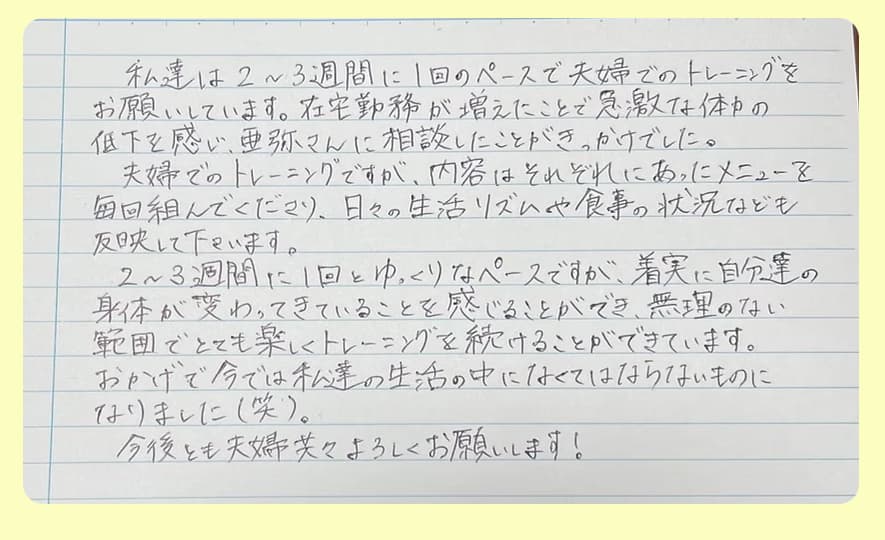 私達は2～3週間に1回のペースで夫婦でのトレーニングを
お願いしています。在宅勤務が増えたことで急激な体力の
低下を感じ、亜弥さんに相談したことがきっかけでした。
夫婦でのトレーニングですが、内容はそれぞれにあったメニューを
毎回組んでくださり、日々の生活リズムや食事の状況なども
反映して下さいます。
2～3週間に1回とゆっくりなペースですが、着実に自分達の
身体が変わってきていることを感じることができ、無理のない
範囲でとても楽しくトレーニングを続けることができています。
おかげで今では私達の生活の中になくてはならないものに
なりました(笑)。
今後とも夫婦共々よろしくお願いします!